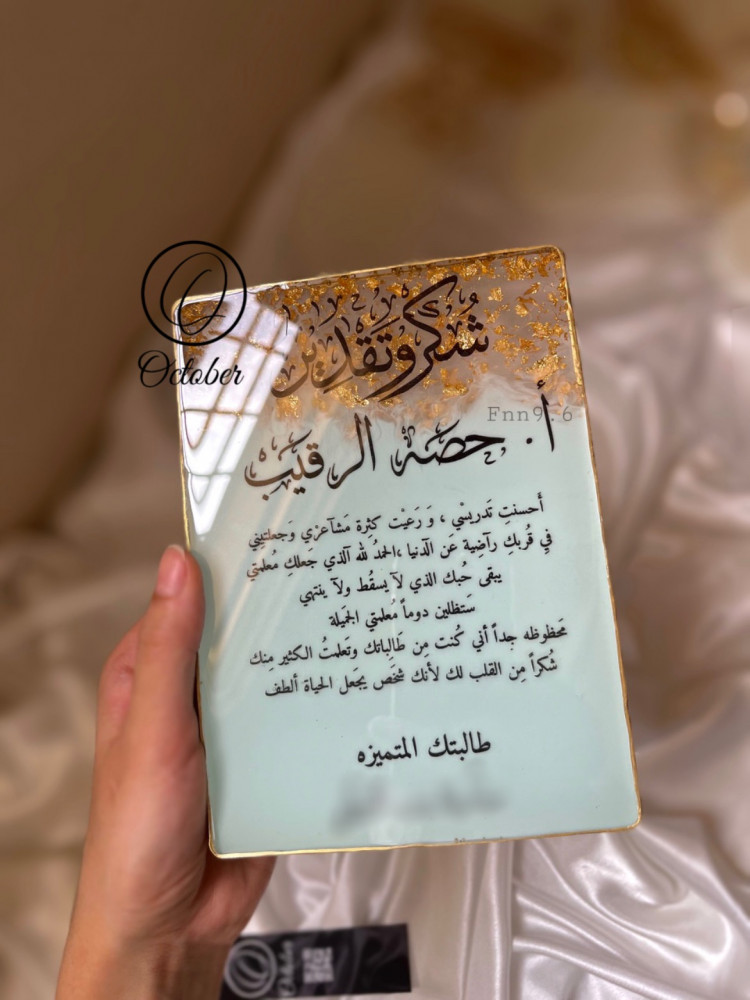 October
شُكر وتَقدِير
Fnn9.6
أ. حصه الرقيب
أَحسنتِ تَدريسي ، وَ رَعيْت كثِرة مَشآعرْي وَجعلتِيني
فِي قُربكِ رآضية عَن الَدنيا ،الحمدُ لله آلذي جَعلكِ مُعلمتي
يبقى حُبك الذي لآ يسقُط ولآ ينتهي
سَتظلين دوماً مُعلمتي الجَميلة
مَحظوظه جداً أني كُنت مِن طَالِباتك وتَعلمتُ الكثير مِنك
شُكراً مِن القلب لك لأنك شخَص يجَعل الحياة ألطف
طالبتك المتميزه
October